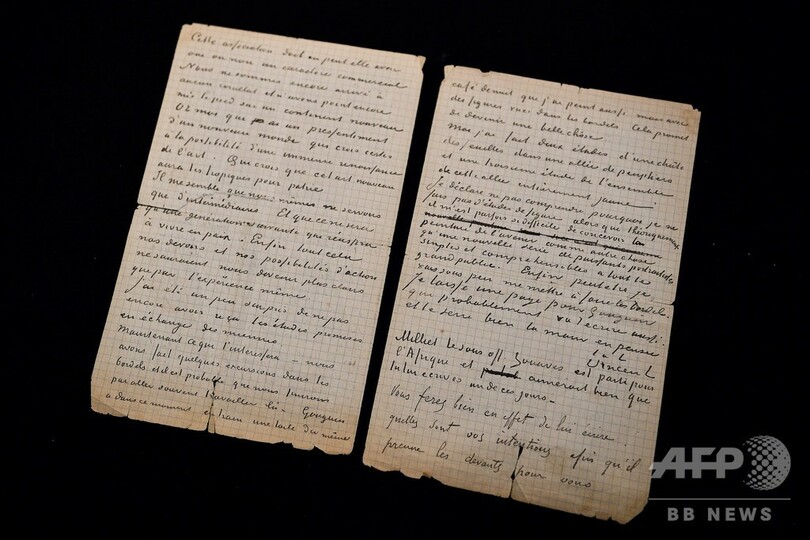 Cette association doit on peut elle avoir
oui ou non un caractère commercial
Nous ne sommes encore arrivé à
aucun resultat et n'avons point encore
mis le pied sur un continent nouveau
Or moi que ai un pressentiment
d'un nouveau monde qui crois certes
à la possibilité d'une immense renaissance
de l'art. Qui crois que cet art nouveau
aura les tropiques pour patrie
Il me semble que nous mêmes ne servons
que d'intermédiaires Et que ce ne sera
qu'une génération suivante qui réussira
à vivre en paix. Enfin tout cela
nos devoirs et nos possibilités d'action
ne sauraient nous devenir plus clairs
que par l'expérience même.
J'ai été un peu surpris de ne pas
encore avoir reçu les études promises
en échange des miennes
Maintenant ce qui t'interessera – nous
avons fait quelques excursions dans les
bordels et il est probable que nous finirons
par aller souvent travailler là. Gauguin
a dans ce moment en train une toile du même
café de nuit que j'ai peint aussi mais avec
des figures vues dans les bordels. Cela promet
de devenir une belle chose.
Moi j'ai fait deux études d'une chute
des feuilles dans une allée de peupliers
et une troisieme étude de l'ensemble
de cette allée entièrement jaune.
Je déclare ne pas comprendre pourquoi je ne
fais pas d'études de figure alors que théoriquement
il m'est parfois si difficile de concevoir la
peinture de l'avenir comme autre chose
qu'une nouvelle serie de puissants portraitistes
simples et comprehensibles à tout le
grand public. Enfin peut etre je
vais sous peu me mettre à faire les bordels.
Je laisse une page pour Gauguin
qui probablement va t'écrire aussi
et te serre bien la main en pensée
t. à t.
Vincent
Milliet le sous off. Zouaves est parti pour
l'Afrique et aimerait bien que
tu lui écrives un de ces jours.
Vous ferez bien en effet de lui écrire
quelles sont vos intentions afin qu'il
prenne les devants pour vous
AFP
BB NEWS